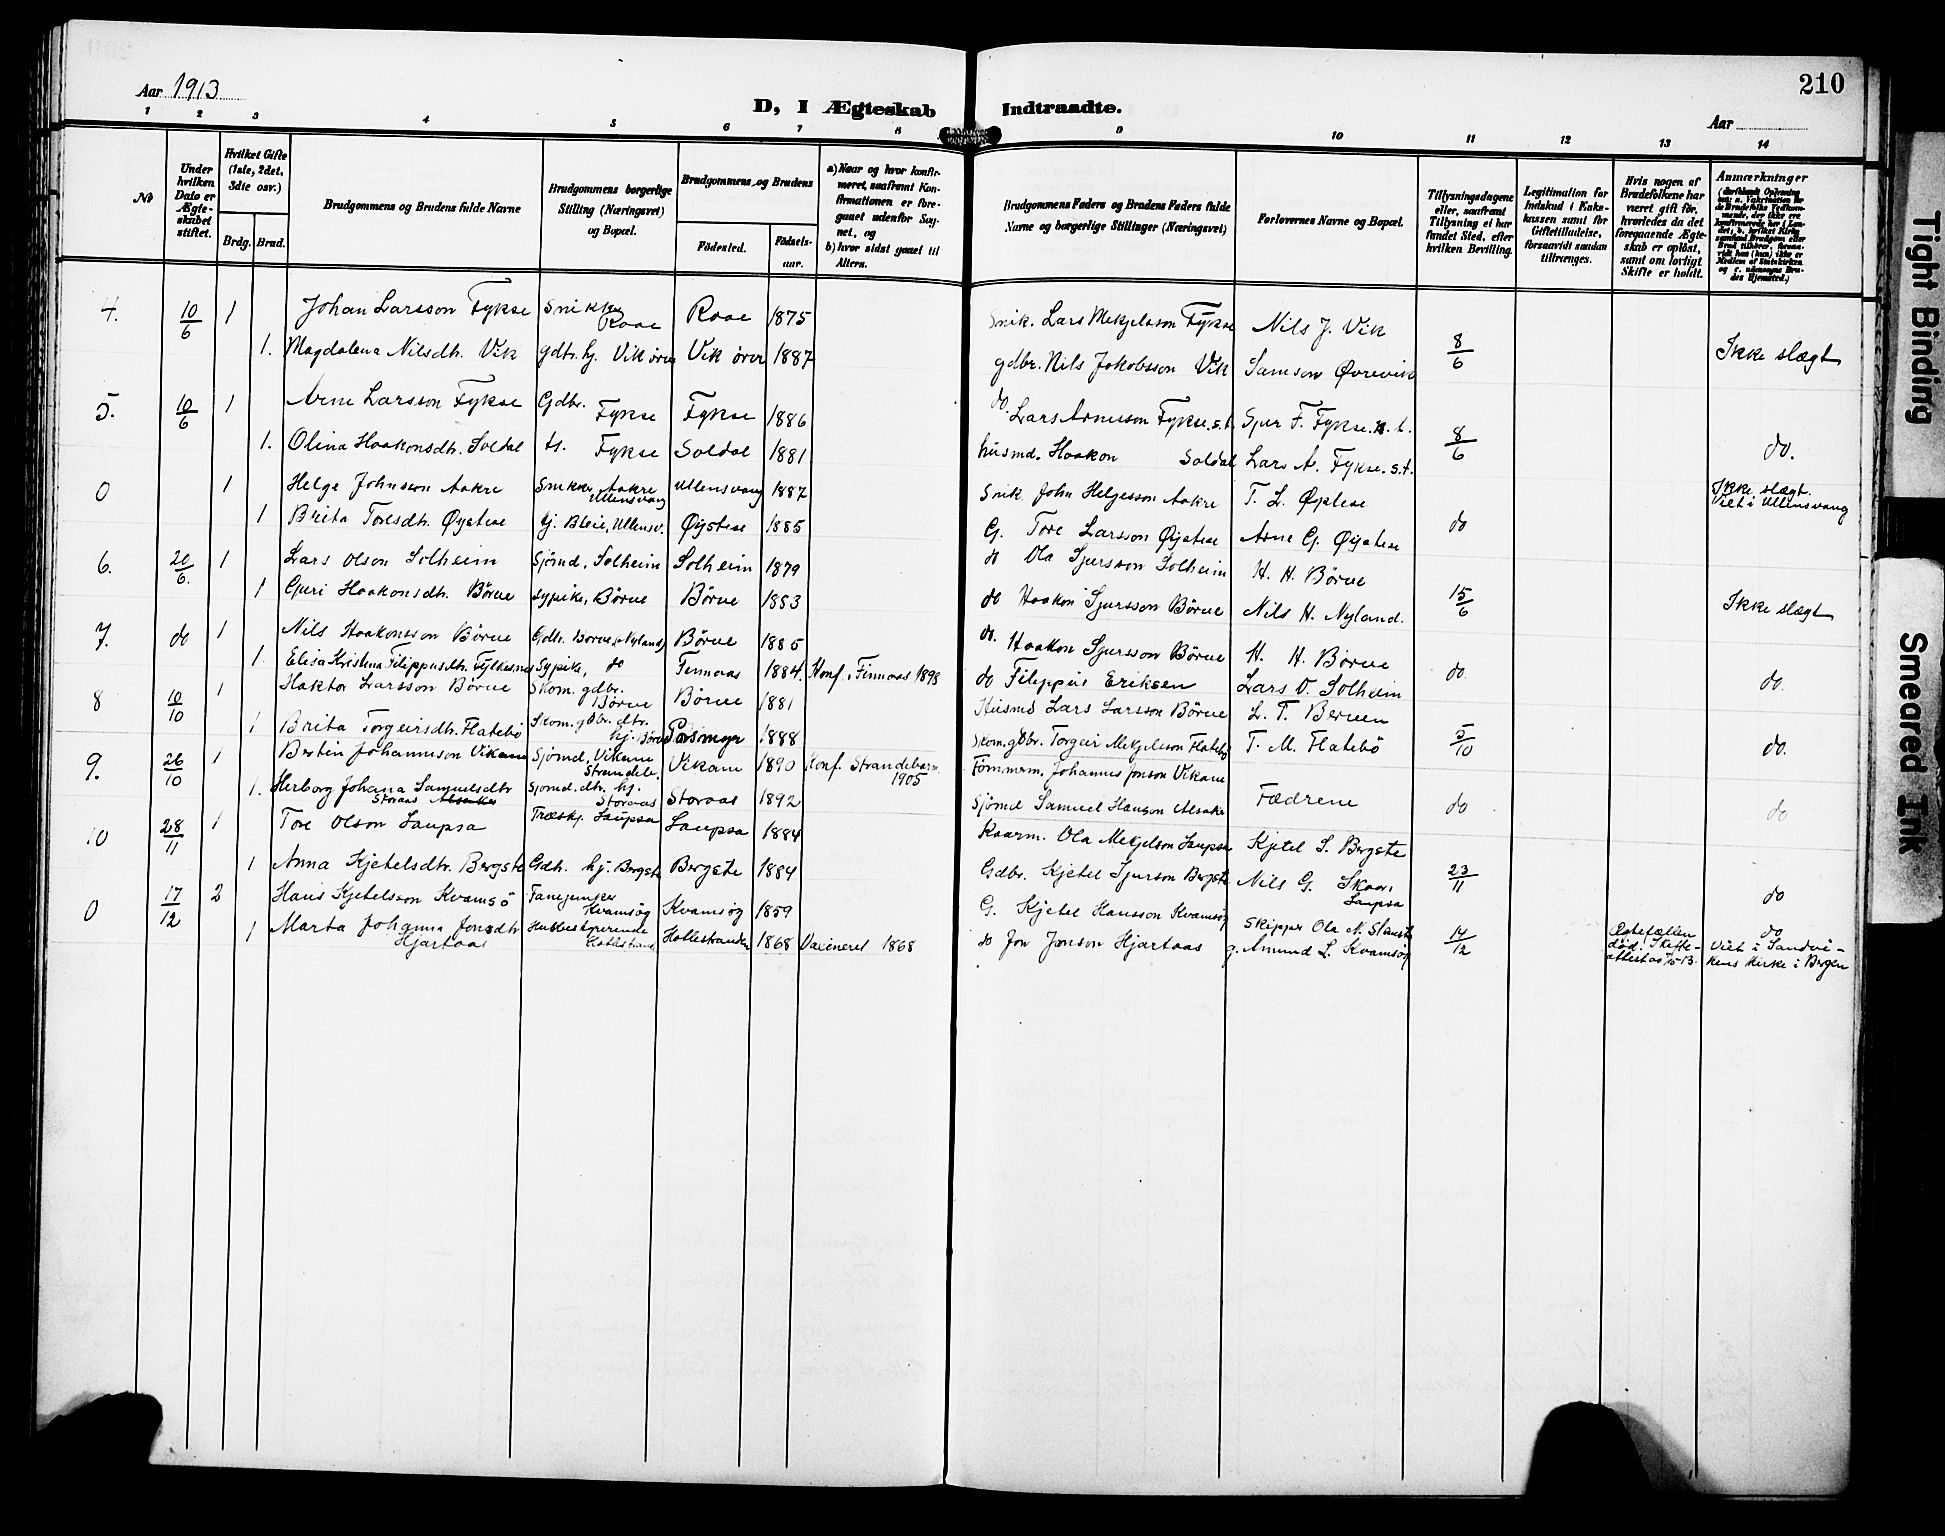 Aar 1913
D, I Ægteskab Indtraadte.
210
Aar
1 2 3 4 5 6 7 8 9 10 11 12 13 14
№
Under hvilken Dato er Ægteskabet stiftet.
Hvilket Gifte (1ste, 2det, 3die osv.)
Brdg. Brud.
Brudgommens og Brudens fulde Navne
Brudgommens borgerlige Stilling (Næringsvei) og Bopæl.
Brudgommens og Brudens
Fødested. Fødselsaar.
a) Naar og hvor konfirmeret, saafremt Konfirmationen er foregaaet udenfor Sognet, og
b) hvor sidst gaaet til Alters.
Brudgommens Faders og Brudens Faders fulde Navne og borgerlige Stillinger (Næringsvei)
Forlovernes Navne og Bopæl.
Tillysningsdagene eller, saafremt Tillysning ei har fundet Sted, efter hvilken Bevilling.
Legitimation for Indskud i Enkekassen samt for Giftetilladelse, forsaavidt saadan tiltrænges.
Hvis nogen af Brudefolkene har været gift før, hvorledes da det foregaaende Ægteskab er opløst, samt om lovligt Skifte er holdt.
Anmærkninger
4. 10/6 1 Johan Larsson Fykse Snikker Raae Raae 1875 Snik. Lars Mekjelsson Fykse Nils J. Vik
1. Magdalena Nilsdtr. Vik gdtr. hj. Vik øvre Vik øvre 1887 gdbr. Nils Jakobsson Vik Samson Øvrevik 8/6 Ikke slægt
5. 10/6 1 Arne Larsson Fykse Gdbr. Fykse Fykse 1886 do. Lars Arnesson Fykse. s.t. Sjur F. Fykse. n.t.
1. Olina Haakonsdtr. Soldal ts. Fykse Soldal 1881 husmd. Haakon Soldal Lars A. Fykse. s.t. 8/6 do.
0 1 Helge Johnson Aakre Snikker, Aakre Ullensvang Ullensvang 1887 Snik John Helgesson Aakre T. L. Øystese Ikke slægt. Viet i Ullensvang
1 Brita Toresdtr. Øystese tj. Bleie, Ullensv. Øystese 1885 G. Tore Larsson Øystese Arne G. Øystese do
6. 20/6. 1 Lars Olson Solheim Sjømd, Solheim Solheim 1879 do Ola Sjursson Solheim H. H. Börve
1 Guri Haakonsdtr. Børve Sypike, Børve Børve 1883 do Haakon Sjursson Børve Nils H. Nyland. 15/6 Ikke slægt
7. do 1 Nils Haakonsson Børve Gdbr. Børve, Nyland Børve 1885 do. Haakon Sjursson Børve H. H. Børve
1. Elisa Kristina Filippusdtr. Fylkesnes Sypike, do Finnaas 1884. Konf. i Finnaas 1898 do Filippus Eriksen Lars O. Solheim do do.
8 10/10 1 Haktor Larsson Börve Skom. gdbr. Børve Børve 1881 Husmd Lars Larsson Børve L. T. Berven
1 Brita Torgeirsdtr. Flatebö Skom. gdbr. dtr. hj. Børve 1888 Skom. gdbr. Torgeir Mekjelsson Flatebø T. M. Flatebö 5/10 do.
9. 26/10 1 Bertin Johannesson Vikane Sjømd, Vikane Strandeb. Vikane 1890 Konf. Strandebarm. 1905 Johannes Jonson Vikane
1. Herborg Johana Samuelsdtr Storaas Sjomd. dtr. hj. Storaas Storaas 1892 Sjömd Samuel Hanson Alsaker Fædrene do do
10 28/11 1 Tore Olson Laupsa Træskj. Laupsa Laupsa 1884 Kaarm. Ola Mekjelson Laupsa Kjetel S. Bergste
1 Anna Kjetelsdtr. Bergste Gdtr. hj. Bergste Bergste 1884 Gdbr. Kjetel Sjurson Bergste Nils G. Skaar, Laupsa 23/11 do
0 17/12 2 Hans Kjetelsson Kvamsö Fanejunker Kvamsøy Kvamsøy 1859 G. Kjetel Hansson Kvamsøy Skipper Ola N.
1 Marta Johanna Jonsdtr Hjartaas Husbestyrerinde Hollestranden 1868 Vacineret 1868 do Jon Jonson Hjartaas g. Amund L. Kvamsøy 14/12 Ægtefællen død. Skifteattest ao 7/5 13. do Viet i Sandvikens Kirke i Bergen
Tight Binding
Smeared Ink